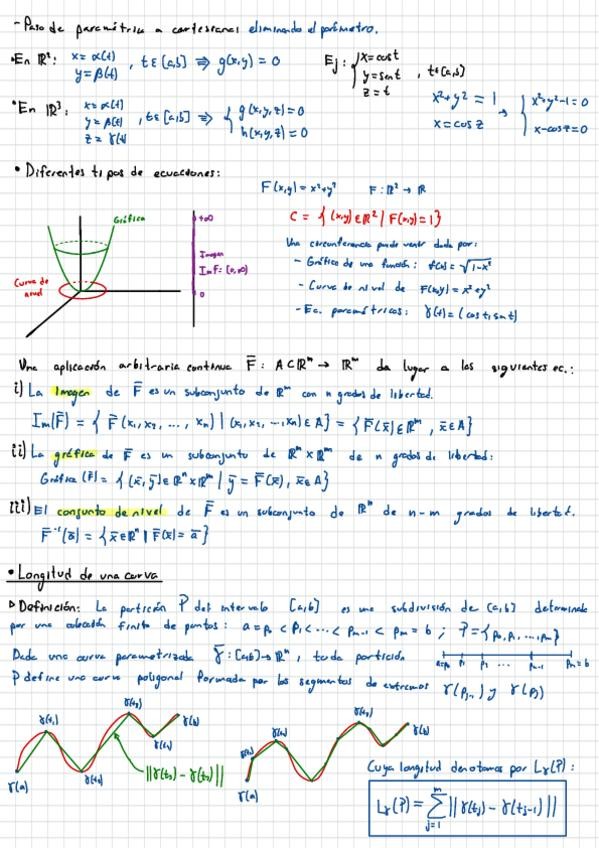 - Paso de paramétrica a cartesianas eliminando el parámetro.
• En ℝ²: x = α(t) y = β(t) , t ∈ [a,b] ⇒ g(x,y) = 0
Ej: { x = cos t y = sen t z = t , t ∈ [a,b]
• En ℝ³: x = α(t) y = β(t) z = γ(t) , t ∈ [a,b] ⇒ { g(x,y,z) = 0 h(x,y,z) = 0
x² + y² = 1 x = cos z → { x² + y² - 1 = 0 x - cos z = 0
• Diferentes tipos de ecuaciones:
F(x,y) = x² + y² F: ℝ² → ℝ
C = { (x,y) ∈ ℝ² | F(x,y) = 1 }
Gráfica
+∞
Imagen
Im F: [0,∞)
0
Curva de nivel
Una circunferencia puede venir dada por:
- Gráfica de una función: f(x) = √1-x²
- Curva de nivel de F(x,y) = x² + y²
- Ec. paramétricas: γ(t) = (cos t, sin t)
Una aplicación arbitraria continua F̄: A ⊂ ℝⁿ → ℝᵐ da lugar a las siguientes ec.:
i) La Imagen de F̄ es un subconjunto de ℝᵐ con n grados de libertad.
Im(F̄) = { F̄(x₁, x₂, ..., xₙ) | (x₁, x₂, ..., xₙ) ∈ A } = { F̄(x̄) ∈ ℝᵐ, x̄ ∈ A }
ii) La gráfica de F̄ es un subconjunto de ℝⁿ × ℝᵐ de n grados de libertad:
Gráfica (F̄) = { (x̄, ȳ) ∈ ℝⁿ × ℝᵐ | ȳ = F̄(x̄), x̄ ∈ A }
iii) El conjunto de nivel de F̄ es un subconjunto de ℝⁿ de n-m grados de libertad.
F̄⁻¹(ā) = { x̄ ∈ ℝⁿ | F̄(x̄) = ā }
• Longitud de una curva
▷ Definición: La partición P del intervalo [a,b] es una subdivisión de [a,b] determinada
por una colección finita de puntos: a = p₀ < p₁ < ... < pₘ₋₁ < pₘ = b ; P = { p₀, p₁, ..., pₘ }
Dada una curva parametrizada γ̄: [a,b] → ℝⁿ, toda partición
a=p₀ p₁ ... pₘ₋₁ pₘ=b
P define una curva poligonal formada por los segmentos de extremos γ(pⱼ₋₁) y γ(pⱼ)
γ(a) γ(t₁) γ(t₂) γ(t₃) γ(t₄) γ(b)
||γ(t₃) - γ(t₂)||
γ(a) γ(b)
Cuya longitud denotamos por Lγ(P):
Lγ(P) = Σ j=1 m ||γ(tⱼ) - γ(tⱼ₋₁)||